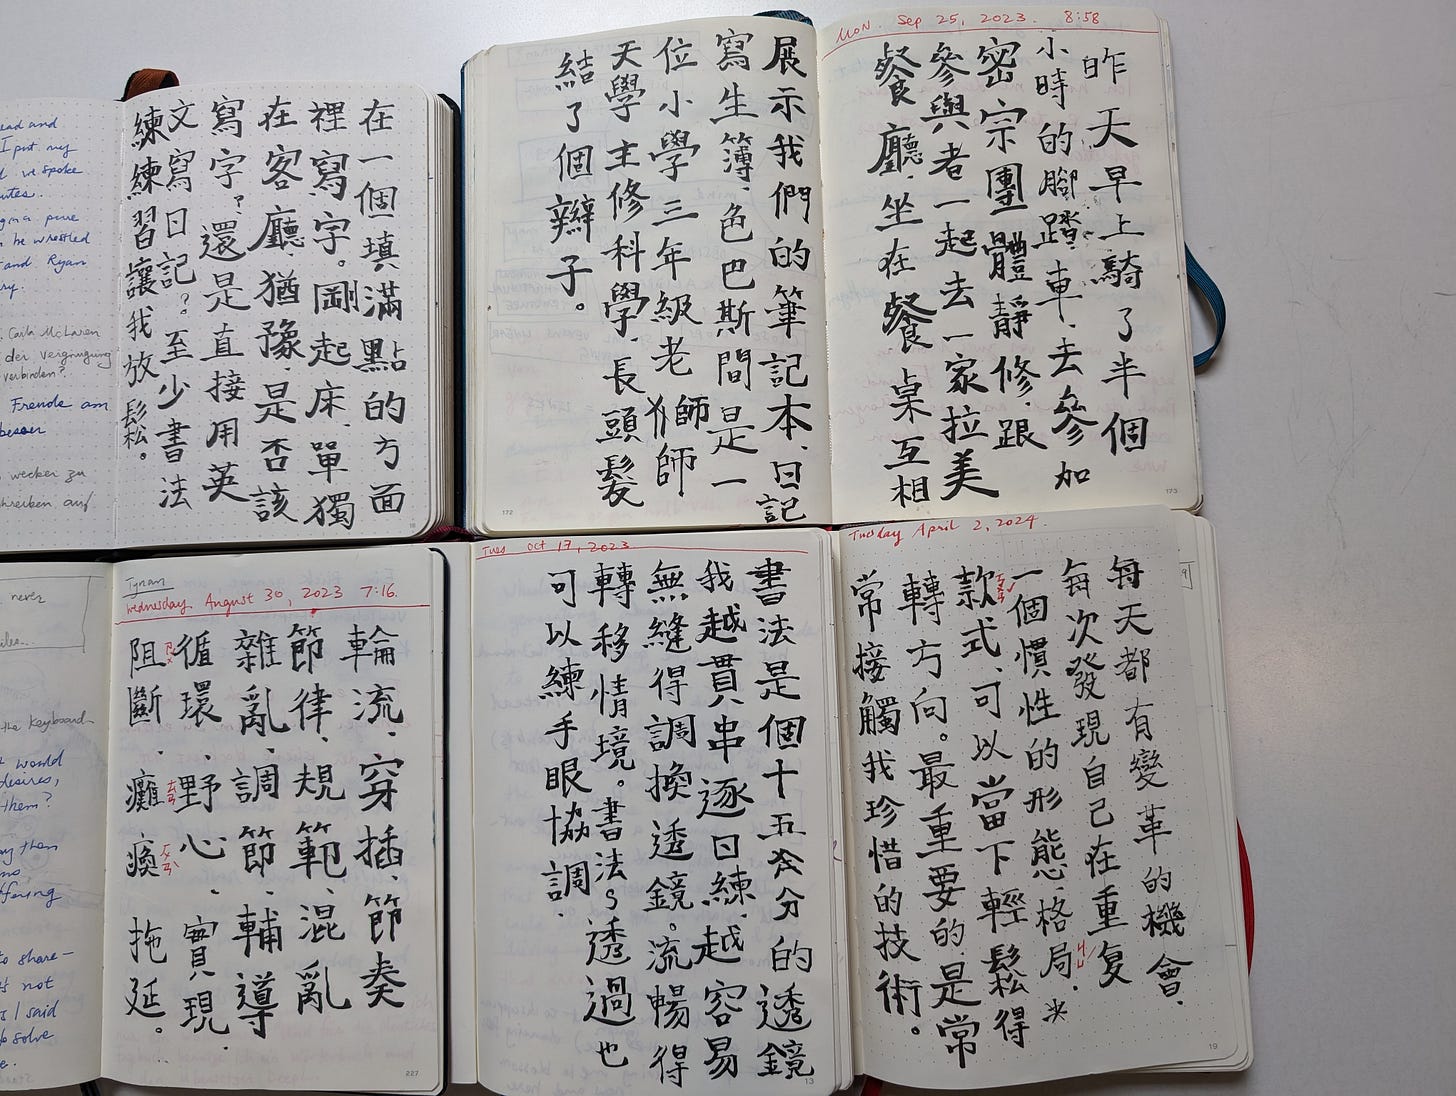 在一個填滿點的方面
裡寫字。剛起床、單獨
在客廳、猶豫、是否該
寫字?還是直接用英
文寫日記?至少書法
練練習讓我放鬆。
18
展示我們的筆記本、日記
寫生簿、色巴斯間是一
位小學三年級老師師
天學主修科學、長頭髮
結了個辮子。
172
Mon Sep 25, 2023. 8:58
昨天早上騎了半個
小時的腳踏車、去參加
密宗團體靜修、跟
參與者一起去一家拉美
餐廳、坐在餐桌互相
173
Tynan
Wednesday August 30, 2023 7:16.
輪流、穿插、節奏
節律、規範、混亂
雜亂、調節、輔導
循環、野心、實現、
阻斷 癱瘓 拖延。
227
Tues Oct 17, 2023
書法是個十五分的透鏡
我越貫串逐日練、越容易
無縫得調換透鏡。流暢得
轉移情境。書法透過也
可以練手眼協調、
13
Tuesday April 2, 2024.
每天都有變革的機會、
每次發現自己在重复
一個慣性的形態、格局、*
款式、可以當下輕鬆得
轉方向。最重要的、是常
常接觸我珍惜的技術。
19
ead and
I put my
we spoke
utes.
he wrestled
and Ryan
Carla McLaren
der Vergnügung
verbinden?
Freude am
besser
wecker zu
schreiben auf
never
the keyboard
would
desires,
them?
them
offering
to share-
not
I said
solve